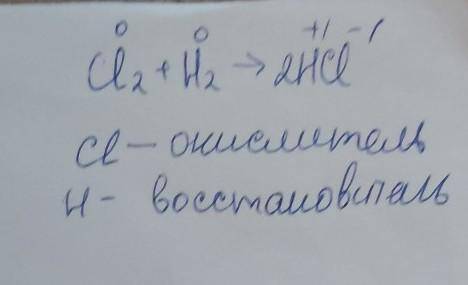 0 0 +1 -1
Cl₂ + H₂ → 2HCl
Cl — окислитель
H - восстановитель